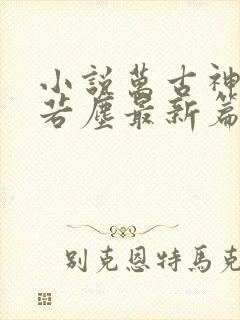 小說萬古神
若塵最新篇
別克恩特馬克